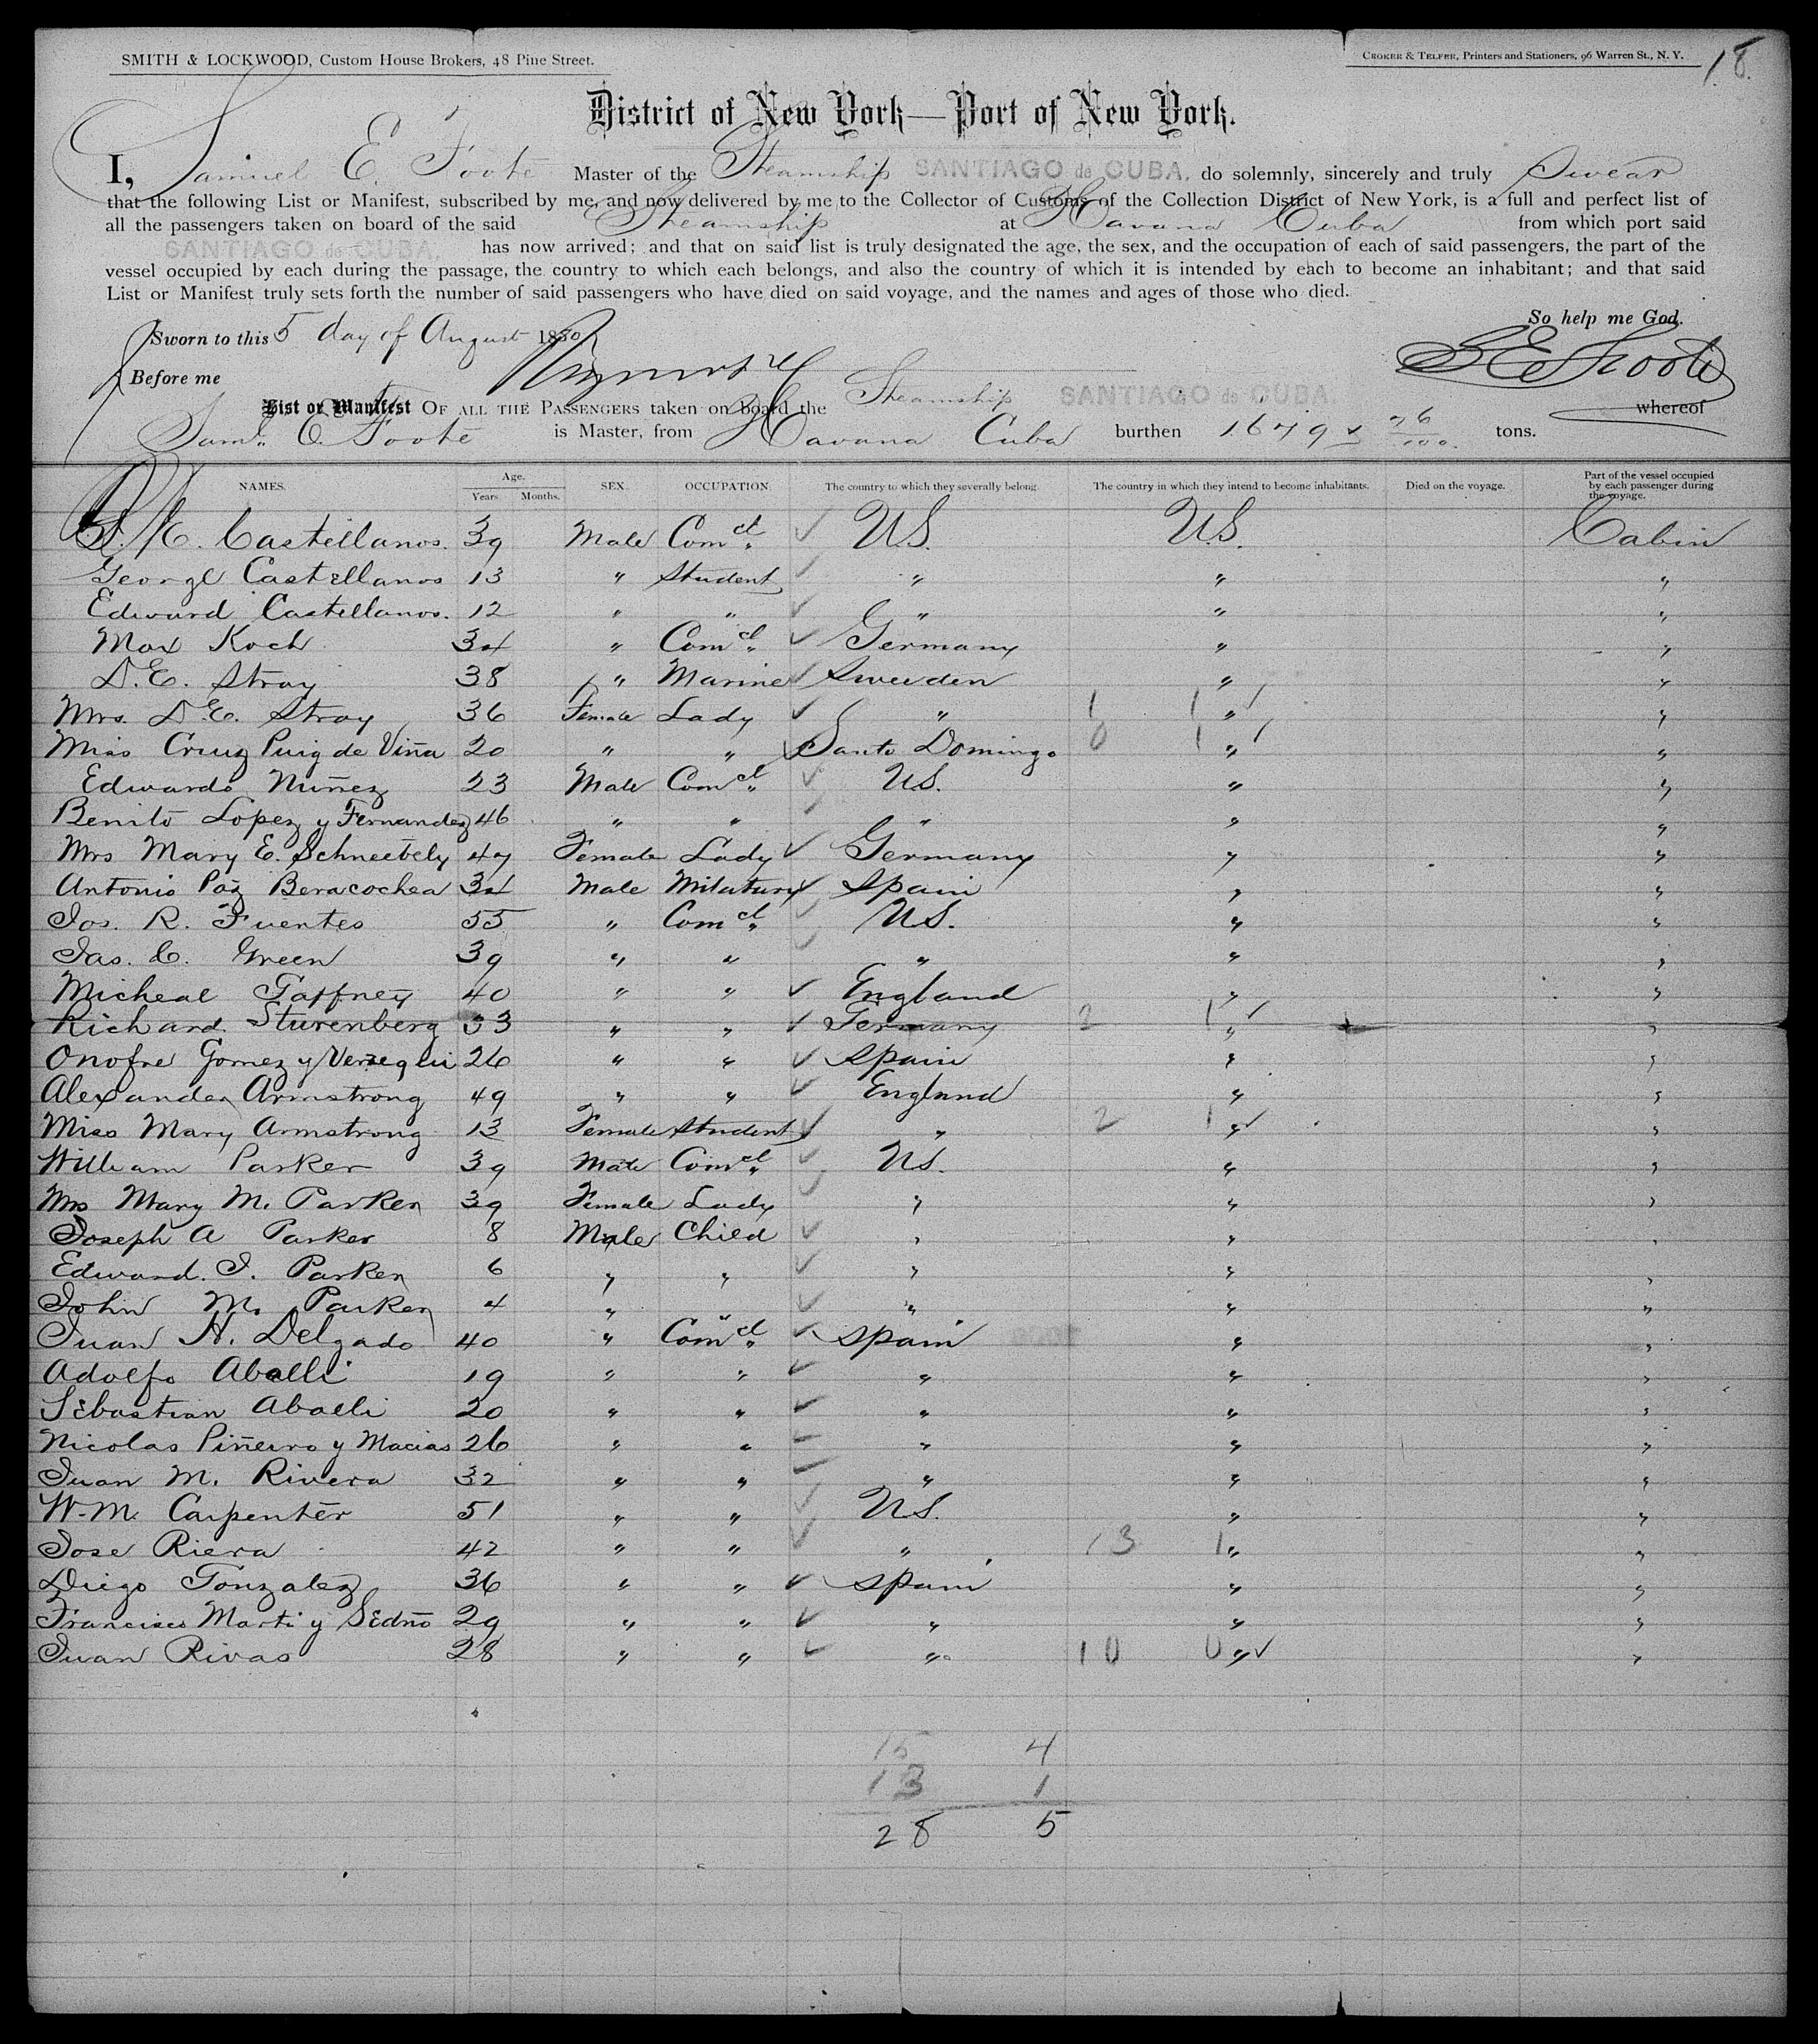 SMITH & LOCKWOOD, Custom House Brokers, 48 Pine Street.
CROKER & TELFER, Printers and Stationers, 96 Warren St., N. Y.
18.
District of New York—Port of New York.
I, Samuel E. Foote Master of the Steamship SANTIAGO de CUBA, do solemnly, sincerely and truly Swear
that the following List or Manifest, subscribed by me, and now delivered by me to the Collector of Customs of the Collection District of New York, is a full and perfect list of
all the passengers taken on board of the said Steamship at Havana Cuba from which port said
SANTIAGO de CUBA, has now arrived; and that on said list is truly designated the age, the sex, and the occupation of each of said passengers, the part of the
vessel occupied by each during the passage, the country to which each belongs, and also the country of which it is intended by each to become an inhabitant; and that said
List or Manifest truly sets forth the number of said passengers who have died on said voyage, and the names and ages of those who died.
So help me God.
Sworn to this 5 day of August 1880
S E Foote
Before me
List or Manifest OF ALL THE PASSENGERS taken on board the Steamship SANTIAGO de CUBA. whereof
Saml. E. Foote is Master, from Havana Cuba burthen 1679 76/100 tons.
NAMES. Age. Years. Months. SEX. OCCUPATION. The country to which they severally belong. The country in which they intend to become inhabitants. Died on the voyage. Part of the vessel occupied by each passenger during the voyage.
Castellanos. 39 Male Comcl. ✓ U.S. U.S. Cabin
George Castellanos 13 " Student ✓ " " "
Edward Castellanos. 12 " " ✓ " " "
Max Koch 34 " Comcl. ✓ Germany " "
D.E. Stray 38 " Marine ✓ Sweeden " "
Mrs. D.E. Stray 36 Female Lady ✓ " 1 1 " ✓ "
Miss Cruz Puig de Viña 20 " " ✓ Santo Domingo 0 1 " ✓ "
Edwardo Nuñez 23 Male Comcl. ✓ U.S. " "
Benito Lopez y Fernandez 46 " " ✓ " " "
Mrs Mary E. Schneebely 47 Female Lady ✓ Germany " "
Antonio Paz Beracochea 34 Male Milatury ✓ Spain " "
Jos. R. Fuentes 55 " Comcl. ✓ U.S. " "
Jas. C. Green 39 " " ✓ " " "
Micheal Gaffney 40 " " ✓ England " "
Richard Sturenberg 33 " " ✓ Germany 2 1 " ✓ "
Onofre Gomez y Verzeglii 26 " " ✓ Spain " "
Alexander Armstrong 49 " " ✓ England " "
Miss Mary Armstrong 13 Female Student ✓ " 2 1 " ✓ "
William Parker 39 Male Comcl. ✓ U.S. " "
Mrs Mary M. Parker 39 Female Lady ✓ " " "
Joseph A Parker 8 Male Child ✓ " " "
Edward. J. Parker 6 " " ✓ " " "
John M. Parker 4 " " ✓ " " "
Juan H. Delgado 40 " Comcl. ✓ Spain " "
Adolfo Aballi 19 " " ✓ " " "
Sebastian Aballi 20 " " ✓ " " "
Nicolas Piñeiro y Macias 26 " " ✓ " " "
Juan M. Rivera 32 " " ✓ " " "
W.M. Carpenter 51 " " ✓ U.S. " "
Jose Riera 42 " " ✓ " 13 1 " "
Diego Gonzalez 36 " " ✓ Spain " "
Francisco Marti y Sedño 29 " " ✓ " " "
Juan Rivas 28 " " ✓ " 10 0 " ✓ "
15 4
13 1
28 5